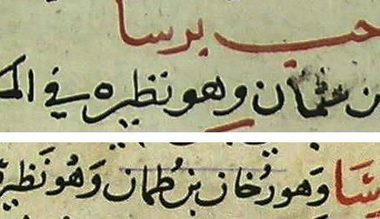 حب برسا
ن عثمان وهو نظيره في الم
سا وهو رخان بن طمان وهو نظير